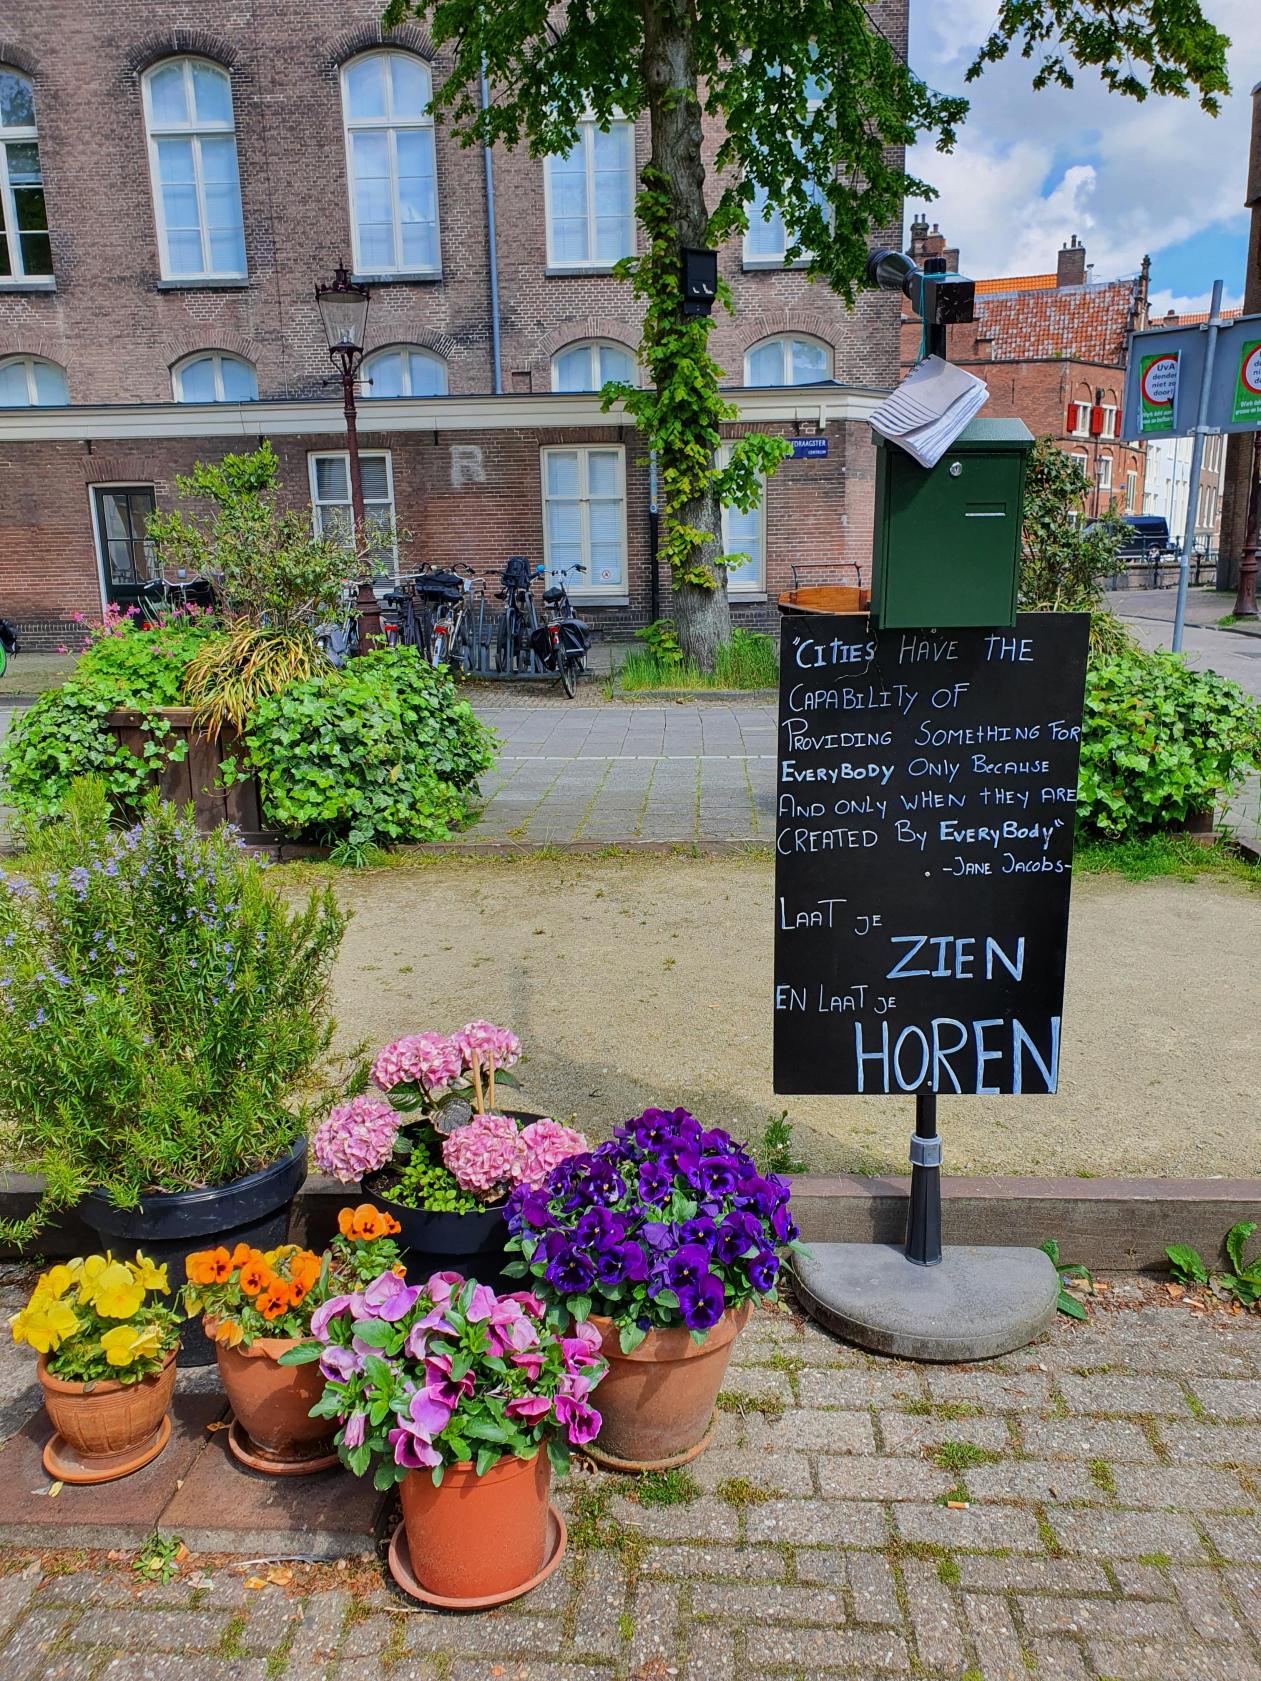 R
EDRAAGSTER
CENTRUM
UvA
dender
niet zo
door!
"CITIES HAVE THE
CAPABILITY OF
PROVIDING SOMETHING FOR
EVERYBODY ONLY BECAUSE
AND ONLY WHEN THEY ARE
CREATED BY EVERYBODY"
-JANE JACOBS-
LAAT JE
ZIEN
EN LAAT JE
HOREN